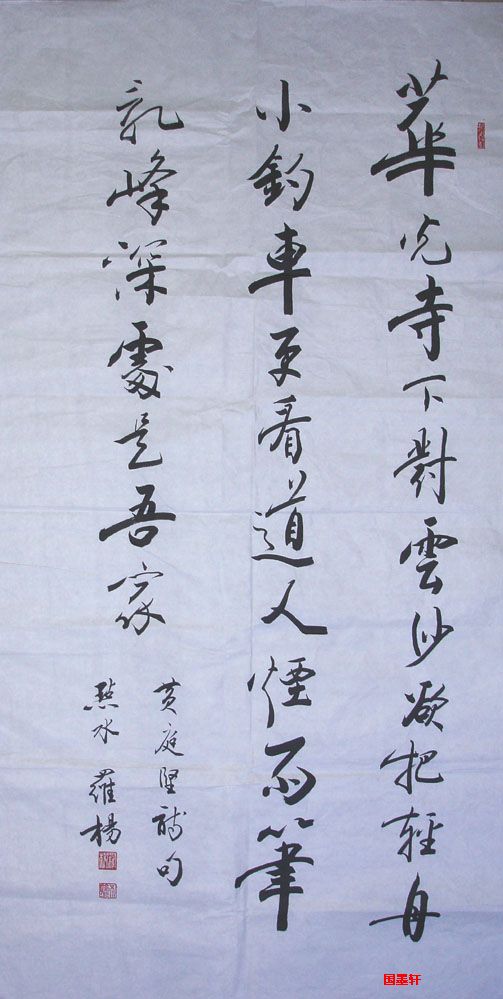 華光寺下對雲沙欲把輕舟
小釣車更看道人煙雨筆
亂峰深處是吾家
黄庭堅詩句
羅楊
国墨轩